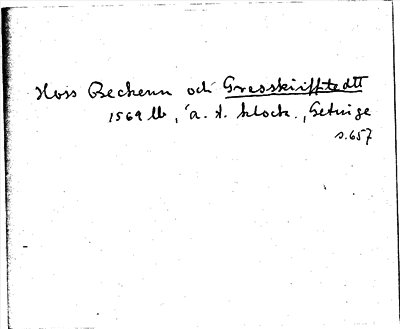 Hoss Beckenn och Gresskrifftedtt
1569 lb, ä. t. klock., Getinge
s. 657